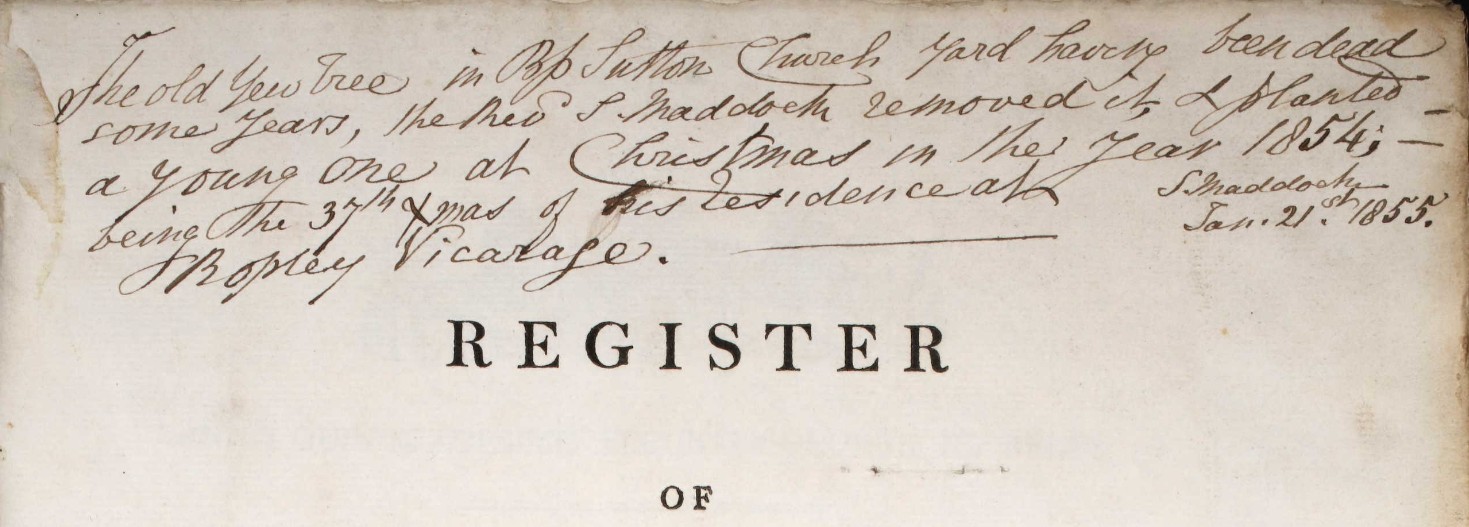 The old Yew Tree in Bp Sutton Church Yard having been dead
some Years, the Revd S. Maddock removed it, & planted –
a young one at Christmas in the Year 1854; –
being the 37th Xmas of his residence at
Ropley Vicarage.
S. Maddock
Jan. 21st 1855.
REGISTER
OF